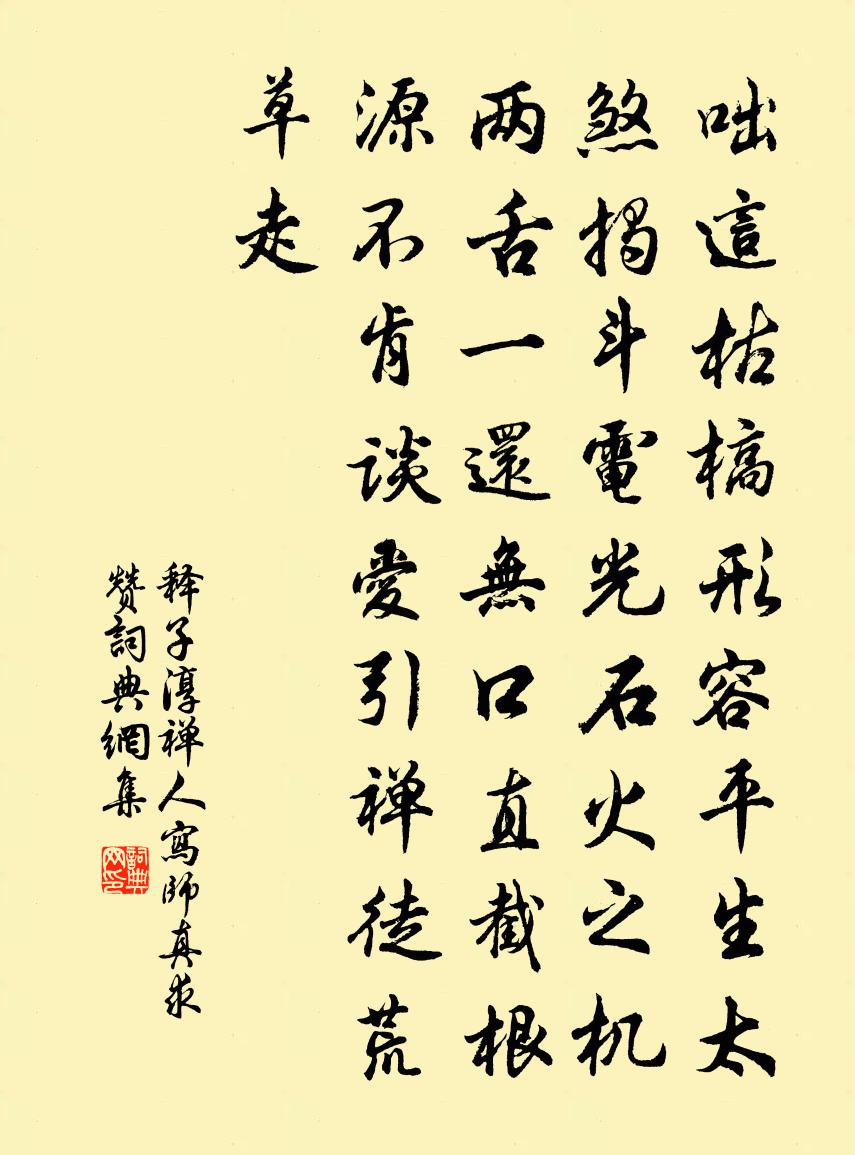 咄這枯槁形容平生太
煞搊斗電光石火之机
两舌一還無口直截根
源不肯谈愛引禅徒荒
草走
释子淳禅人寫師真求
赞詞典網集
詞典
网印